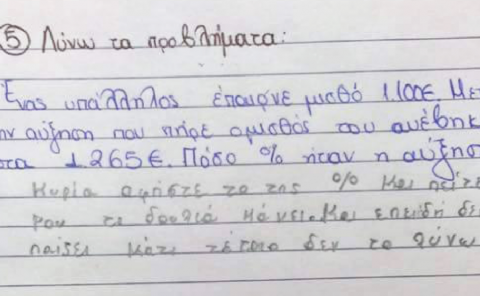 ⑤ Λύνω τα προβλήματα:
Ένας υπάλληλος έπαιρνε μισθό 1.100€. Με
ην αύξηση που πήρε ο μισθός του ανέβηκ
στα 1.265€. Πόσο % ήταν η αύξηση
Κυρία αφήστε το της % και πείτε
μου τι δουλειά κάνει. Και επειδή δε
παίζει κάτι τέτοιο δεν το λύνω